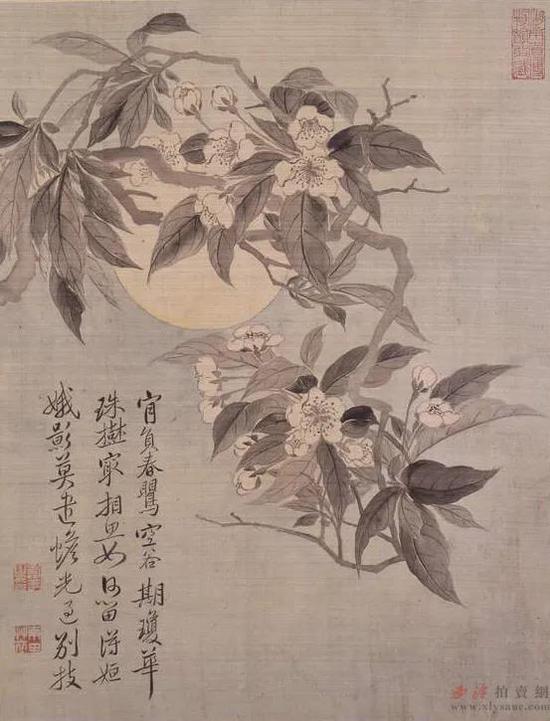 肯負春鸎空谷期瓊華
珠樹冣相思如何留得姮
娥影莫遣蟾光過別枝
西泠拍賣網
www.xlysauc.com